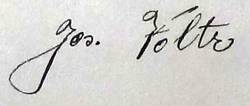 Jos. Fóltr